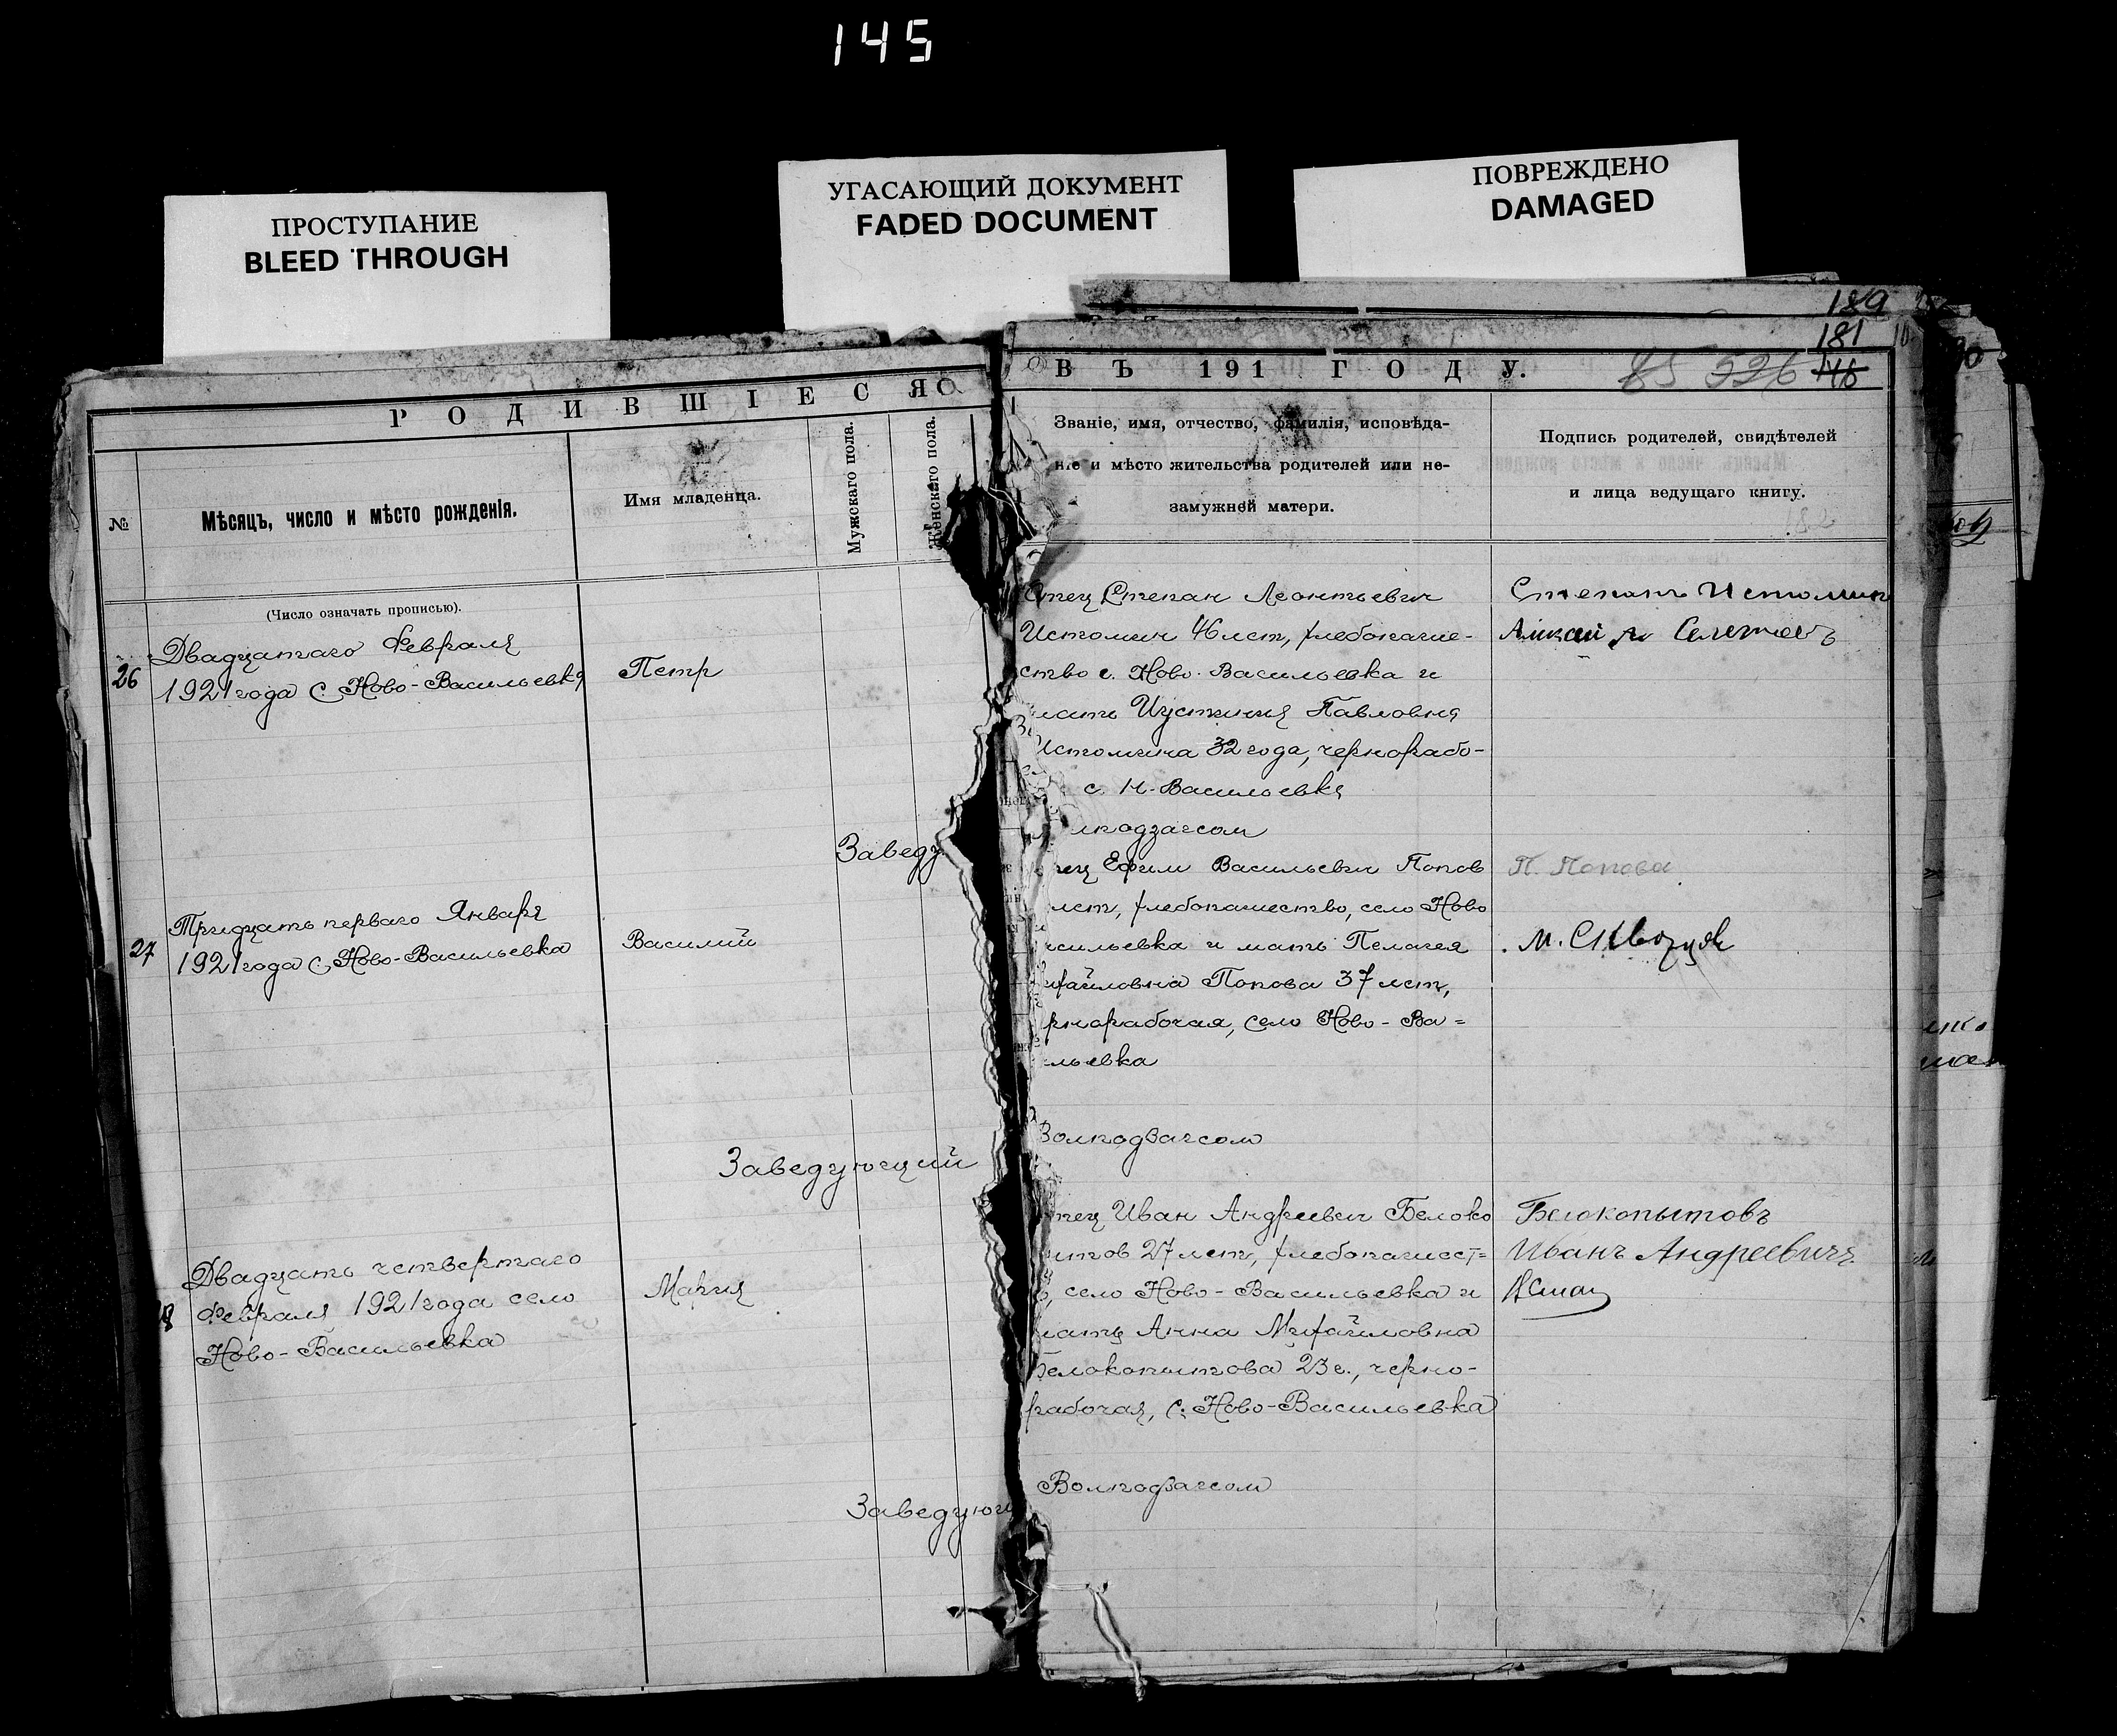 145
ПРОСТУПАНИЕ
BLEED THROUGH
УГАСАЮЩИЙ ДОКУМЕНТ
FADED DOCUMENT
ПОВРЕЖДЕНО
DAMAGED
189
181
РОДИВШІЕСЯ
ВЪ 191 ГОДУ.
85 326 146
№
Мѣсяцъ, число и мѣсто рожденія.
Имя младенца.
Мужскаго пола.
Женскаго пола.
(Число означать прописью).
26
Двадцатаго Февраля
1921 года с. Ново-Васильевка
Петр
Заведу
27
Тридцать перваго Января
1921 года с. Ново-Васильевка
Василий
Заведующий
Двадцать четвертаго
Февраля 1921 года село
Ново-Васильевка
Мария
Заведующ
Званіе, имя, отчество, фамилія, исповѣда-
ніе и мѣсто жительства родителей или не-
замужней матери.
Подпись родителей, свидѣтелей
и лица ведущаго книгу.
182
Отец Степан Леонтьевич
Истомин 46 лет, хлебопаше-
ство с. Ново-Васильевка и
мать Иустиния Павловна
Истомина 32 года, чернорабо-
с. Н-Васильевка
лподзагсом
Степанъ Истомин
тец Ефим Васильевич Попов
лет, хлебопашество, село Ново
сильевка и мать Пелагея
ихайловна Попова 37 лет,
рнорабочая, село Ново-Ва=
льевка
Волподзагсом
П. Попова
тец Иван Андреевич Белоко
ытов 27 лет, хлебопашест=
село Ново-Васильевка и
мать Анна Михайловна
Белокопытова 23 г., черно-
рабочая, с. Ново-Васильевка
Волподзагсом
Белокопытовъ
Иванъ Андреевичъ